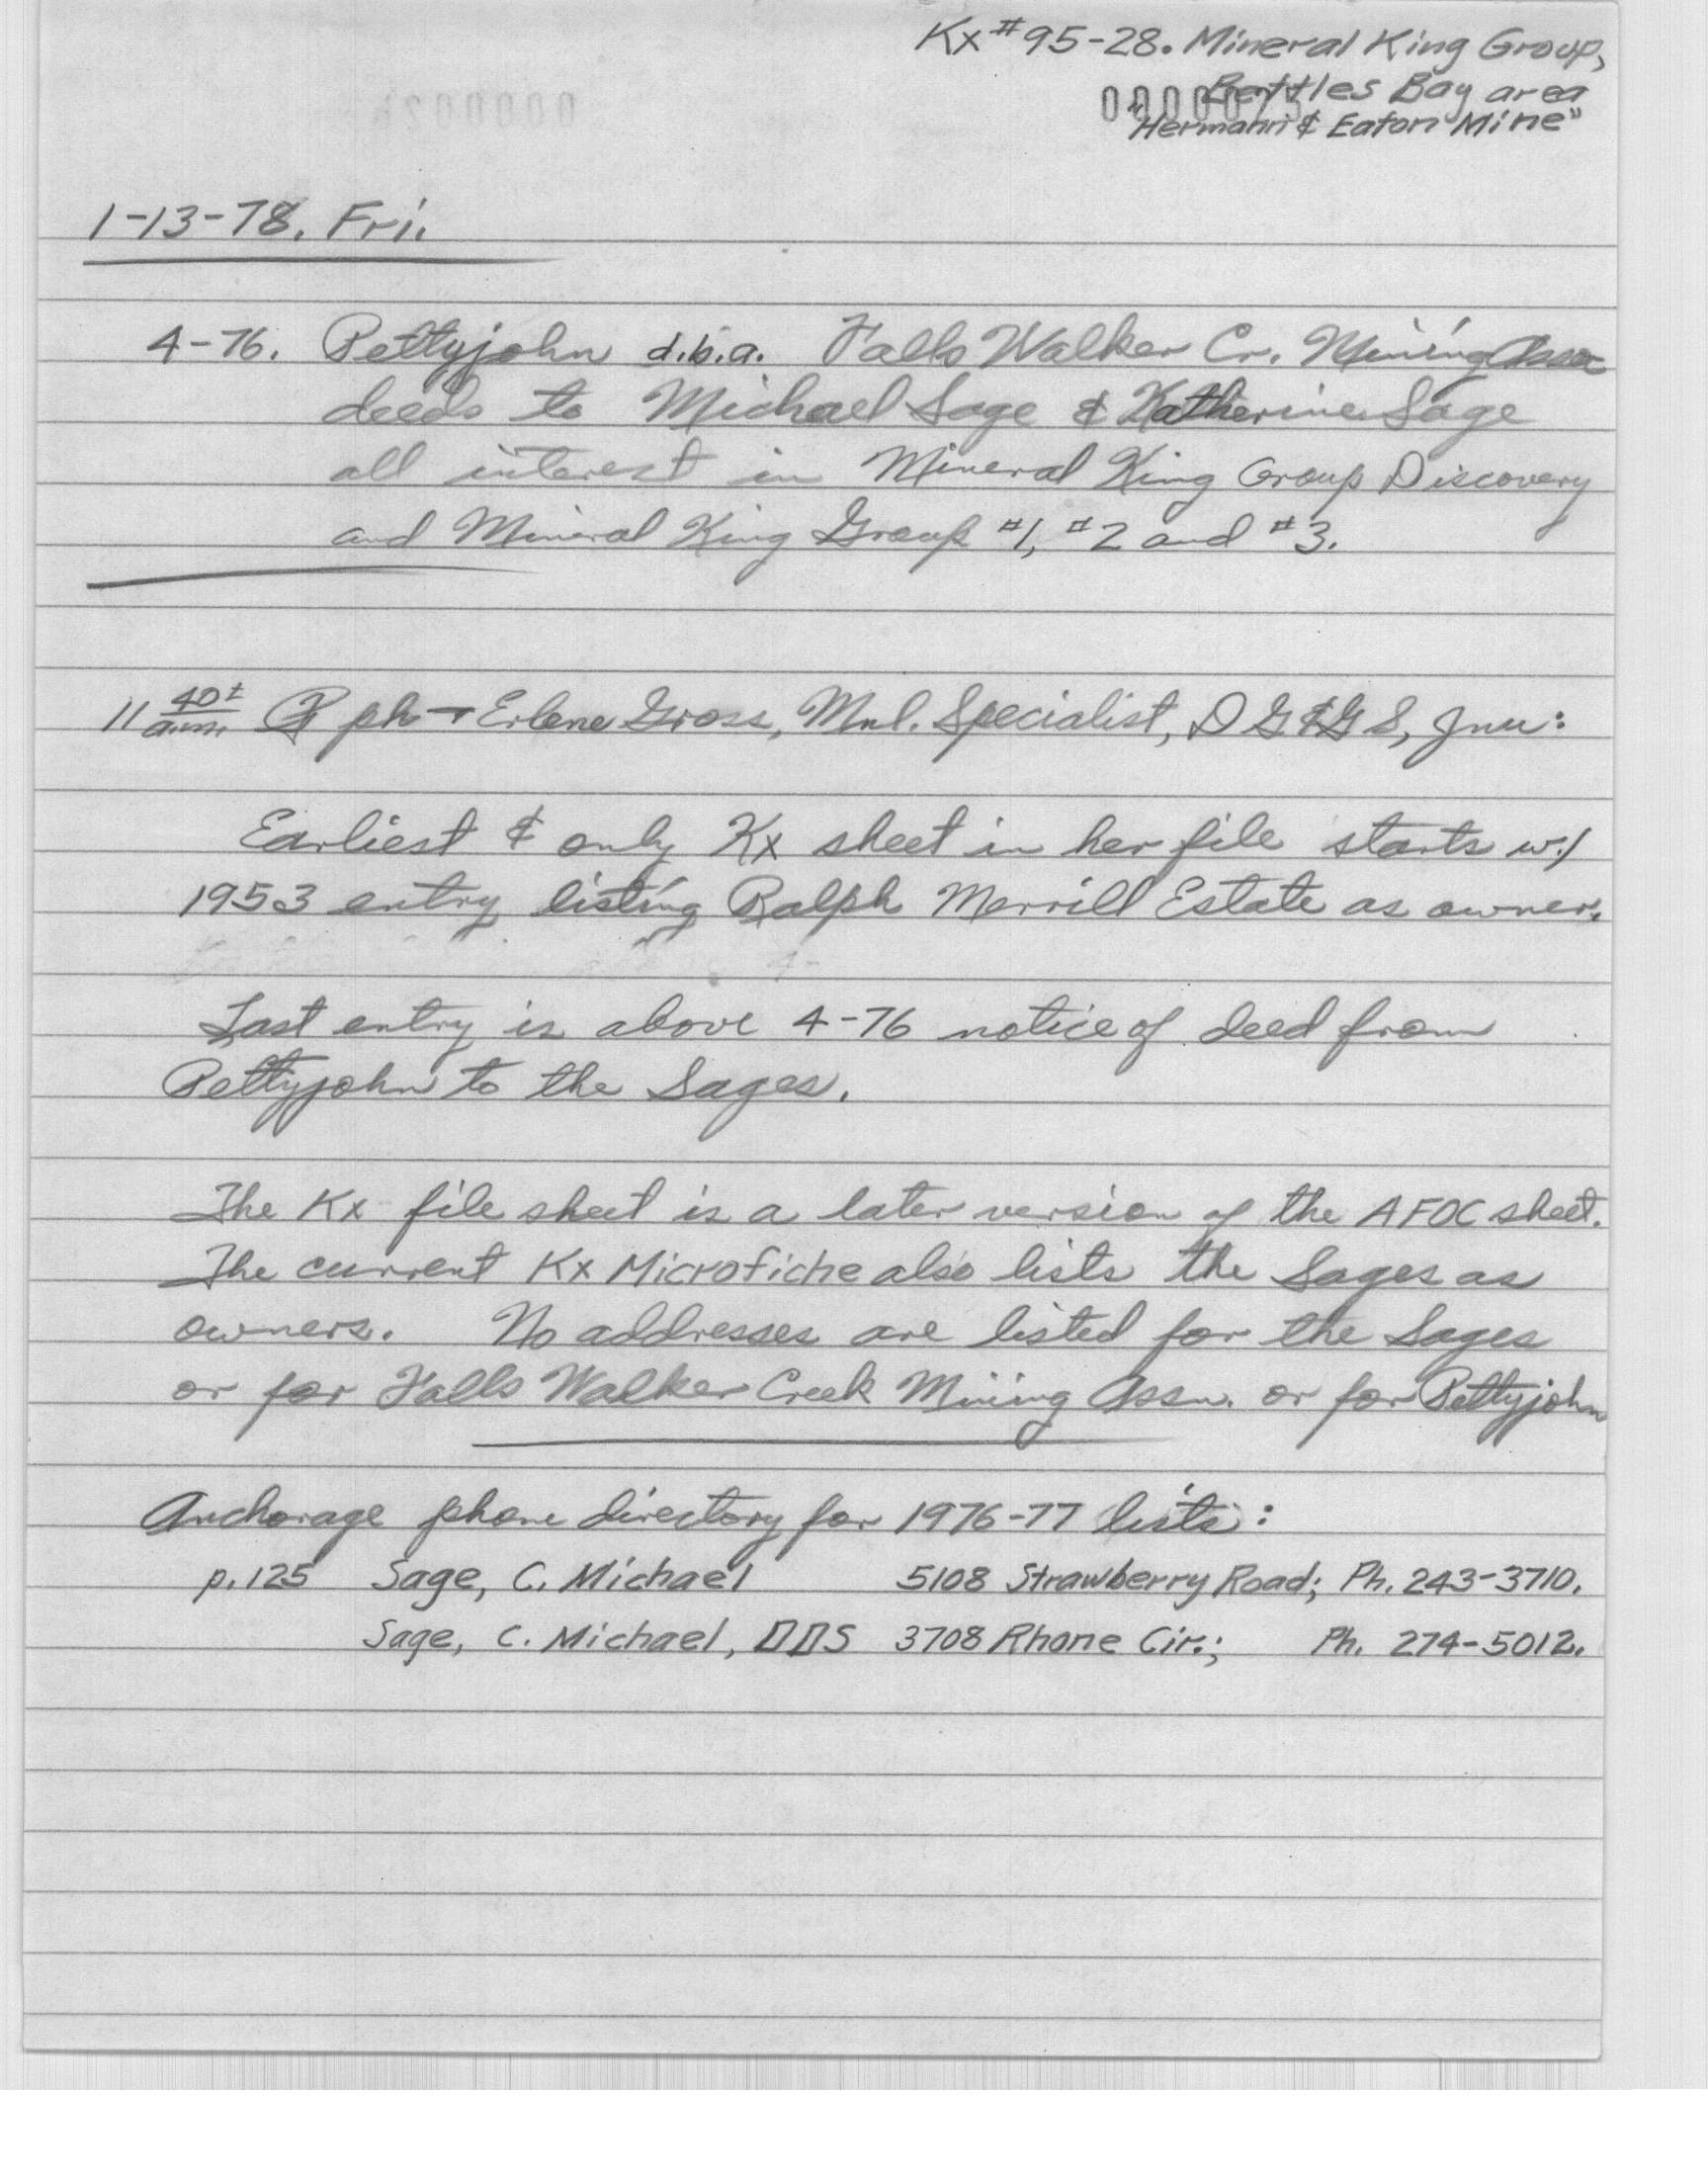 Kx #95-28. Mineral King Group,
Bettles Bay area
"Hermann & Eaton Mine"
1-13-78. Fri.
4-76. Pettyjohn d.b.a. Falls Walker Cr. Mining Assn
deeds to Michael Sage & Katherine Sage
all interest in Mineral King Group Discovery
and Mineral King Group #1, #2 and #3.
11 40± a.m. ph → Erlene Gross, Mnl. Specialist, DG&GS, Jnu:
Earliest & only Kx sheet in her file starts w/
1953 entry listing Ralph Merrill Estate as owner.
Last entry is above 4-76 notice of deed from
Pettyjohn to the Sages.
The Kx file sheet is a later version of the AFOC sheet.
The current Kx Microfiche also lists the Sages as
owners. No addresses are listed for the Sages
or for Falls Walker Creek Mining Assn. or for Pettyjohn
Anchorage phone directory for 1976-77 lists:
p.125 Sage, C. Michael 5108 Strawberry Road; Ph. 243-3710.
Sage, C. Michael, DDS 3708 Rhone Cir.; Ph. 274-5012.